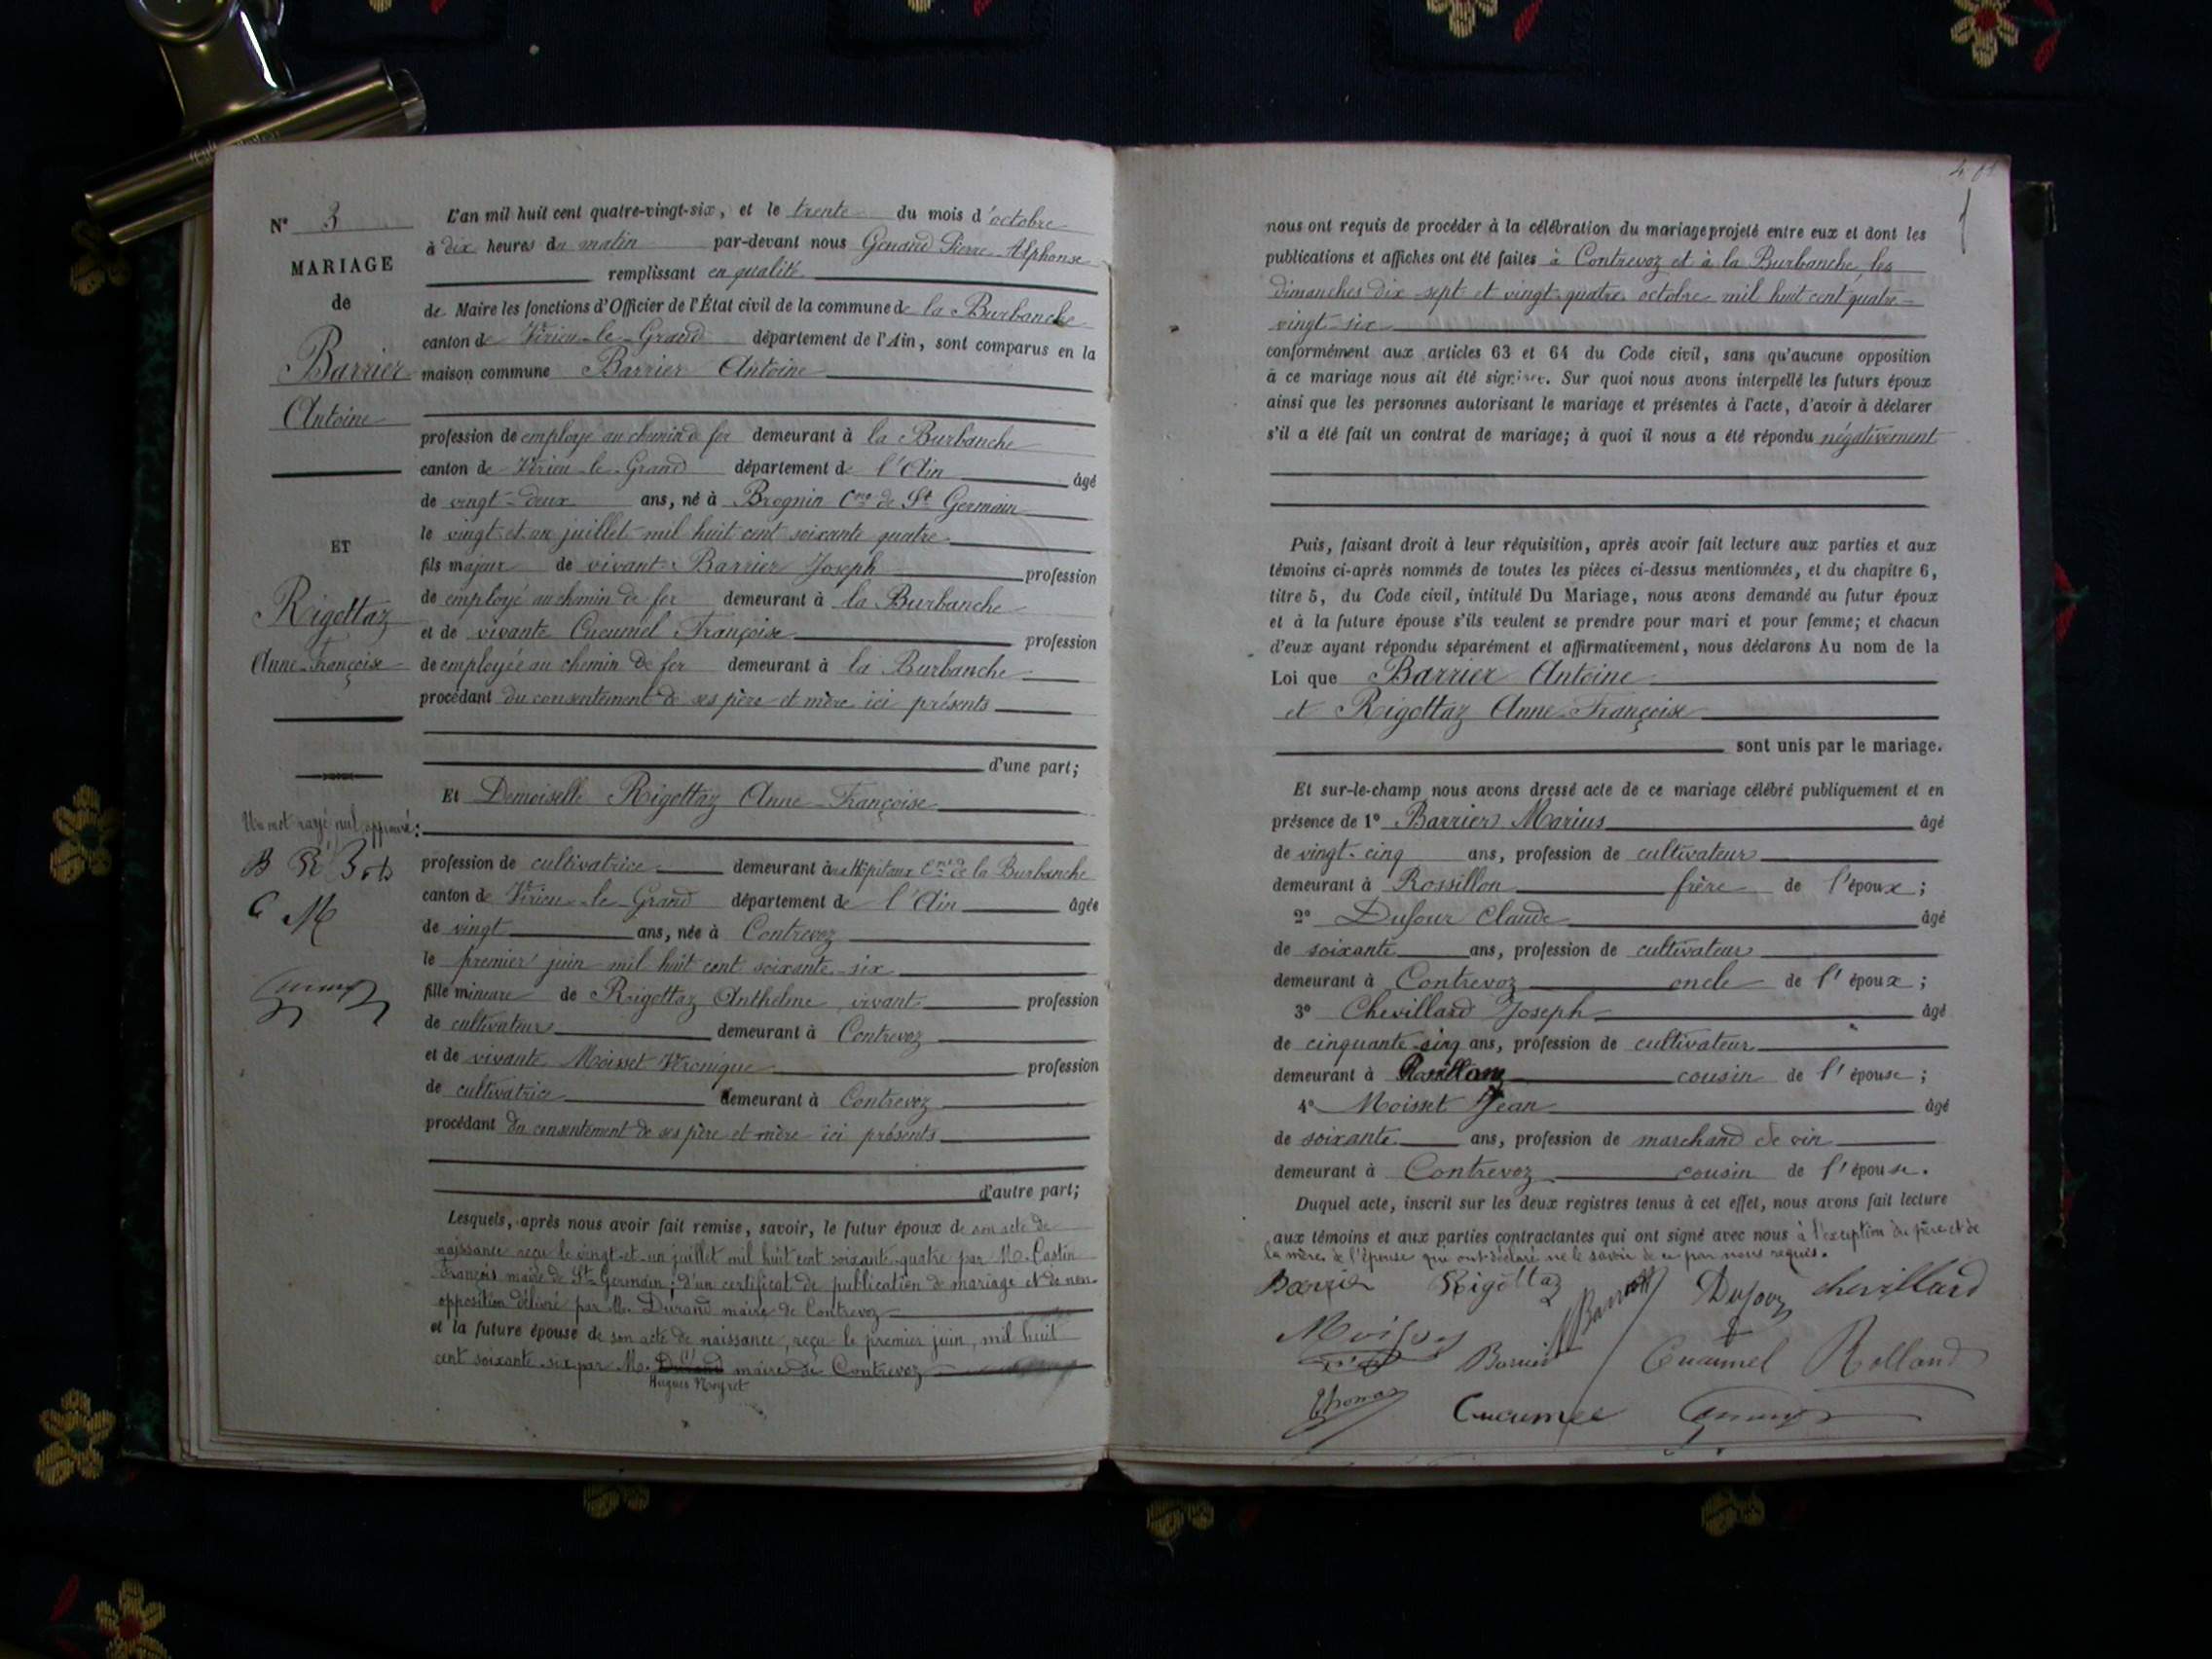 N° 3
MARIAGE
de
Barrier
Antoine
ET
Rigottaz
Anne-Françoise
Un mot rayé nul approuvé:
L'an mil huit cent quatre-vingt-six, et le trente du mois d'octobre
à dix heures du matin par-devant nous Genand Pierre Alphonse
remplissant en qualité
de Maire les fonctions d'Officier de l'État civil de la commune de la Burbanche
canton de Virieu-le-Grand département de l'Ain, sont comparus en la
maison commune Barrier Antoine
profession de employé au chemin de fer demeurant à la Burbanche
canton de Virieu-le-Grand département de l'Ain âgé
de vingt-deux ans, né à Brognin Cne de St Germain
le vingt-et-un juillet mil huit cent soixante quatre
fils majeur de vivant Barrier Joseph profession
de employé au chemin de fer demeurant à la Burbanche
et de vivante Cucumel Françoise profession
de employée au chemin de fer demeurant à la Burbanche
procédant du consentement de ses père et mère ici présents
d'une part;
Et Demoiselle Rigottaz Anne-Françoise
profession de cultivatrice demeurant aux Hôpitaux Cne de la Burbanche
canton de Virieu-le-Grand département de l'Ain âgée
de vingt ans, née à Contrevoz
le premier juin mil huit cent soixante-six
fille mineure de Rigottaz Anthelme, vivant profession
de cultivateur demeurant à Contrevoz
et de vivante Moisset Véronique profession
de cultivatrice demeurant à Contrevoz
procédant du consentement de ses père et mère ici présents
d'autre part;
Lesquels, après nous avoir fait remise, savoir, le futur époux de son acte de
naissance reçu le vingt-et-un juillet mil huit cent soixante-quatre par M. Castin
François maire de St Germain; d'un certificat de publication de mariage et de non-
opposition délivré par M. Durand maire de Contrevoz
et la future épouse de son acte de naissance, reçu le premier juin, mil huit
cent soixante-six par M. Durand maire de Contrevoz
Hugues Neyret
nous ont requis de procéder à la célébration du mariage projeté entre eux et dont les
publications et affiches ont été faites à Contrevoz et à la Burbanche, les
dimanches dix-sept et vingt-quatre octobre mil huit cent quatre-
vingt-six
conformément aux articles 63 et 64 du Code civil, sans qu'aucune opposition
à ce mariage nous ait été signifiée. Sur quoi nous avons interpellé les futurs époux
ainsi que les personnes autorisant le mariage et présentes à l'acte, d'avoir à déclarer
s'il a été fait un contrat de mariage; à quoi il nous a été répondu négativement
Puis, faisant droit à leur réquisition, après avoir fait lecture aux parties et aux
témoins ci-après nommés de toutes les pièces ci-dessus mentionnées, et du chapitre 6,
titre 5, du Code civil, intitulé Du Mariage, nous avons demandé au futur époux
et à la future épouse s'ils veulent se prendre pour mari et pour femme; et chacun
d'eux ayant répondu séparément et affirmativement, nous déclarons Au nom de la
Loi que Barrier Antoine
et Rigottaz Anne-Françoise
sont unis par le mariage.
Et sur-le-champ nous avons dressé acte de ce mariage célébré publiquement et en
présence de 1° Barrier Marius âgé
de vingt-cinq ans, profession de cultivateur
demeurant à Rossillon frère de l'époux;
2° Dufour Claude âgé
de soixante ans, profession de cultivateur
demeurant à Contrevoz oncle de l'époux;
3° Chevillard Joseph âgé
de cinquante-cinq ans, profession de cultivateur
demeurant à cousin de l'épouse;
4° Moisset Jean âgé
de soixante ans, profession de marchand de vin
demeurant à Contrevoz cousin de l'épouse.
Duquel acte, inscrit sur les deux registres tenus à cet effet, nous avons fait lecture
aux témoins et aux parties contractantes qui ont signé avec nous à l'exception du père et de
la mère de l'épouse qui ont déclaré ne le savoir de ce par nous requis.
Barrier Rigottaz Dufour Chevillard
Barrier Cucumel Rolland
Thomas Cucumel